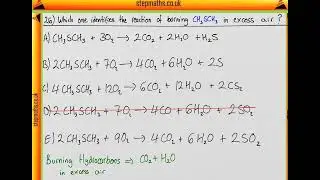 stepmaths.co.uk
26) Which one identifies the reaction of burning CH₃SCH₃ in excess air?
A) CH₃SCH₃ + 3O₂ → 2CO₂ + 2H₂O + H₂S
B) 2CH₃SCH₃ + 7O₂ → 4CO₂ + 6H₂O + 2S
C) 4CH₃SCH₃ + 12O₂ → 6CO₂ + 12H₂O + 2CS₂
D) 2CH₃SCH₃ + 7O₂ → 4CO + 6H₂O + 2SO₂
E) 2CH₃SCH₃ + 9O₂ → 4CO₂ + 6H₂O + 2SO₂
Burning Hydrocarbons ⇒ CO₂ + H₂O
in excess air
stepmaths.co.uk